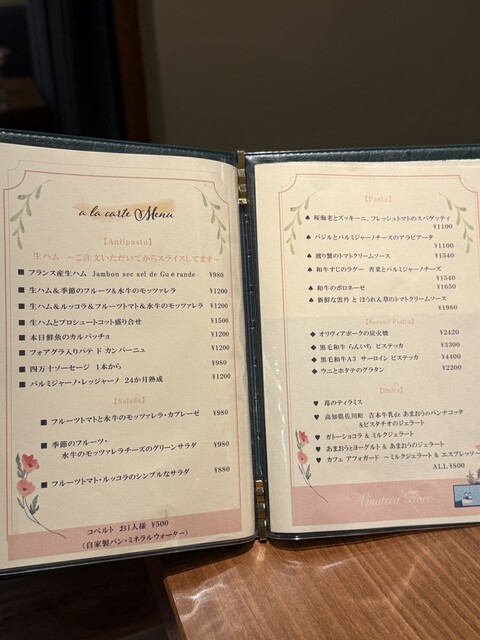 a la carte Menu
【Antipasto】
生ハム ～ご注文いただいてからスライスしてます～
■ フランス産生ハム Jambon sec sel de Guérande ¥980
■ 生ハム&季節のフルーツ&水牛のモッツァレラ ¥1200
■ 生ハム&ルッコラ&フルーツトマト&水牛のモッツァレラ ¥1200
■ 生ハムとプロシュートコット盛り合せ ¥1500
■ 本日鮮魚のカルパッチョ ¥1200
■ フォアグラ入りパテ ド カンパーニュ ¥1200
■ 四万十ソーセージ 1本から ¥980
■ パルミジャーノ・レッジャーノ 24か月熟成 ¥1200
【Salada】
■ フルーツトマトと水牛のモッツァレラ・カプレーゼ ¥980
■ 季節のフルーツ・
水牛のモッツァレラチーズのグリーンサラダ ¥980
■ フルーツトマト・ルッコラのシンプルなサラダ ¥880
コペルト お1人様 ¥500
(自家製パン・ミネラルウォーター)
【Pasta】
♠ 桜海老とズッキーニ、フレッシュトマトのスパゲッティ
¥1100
♠ バジルとパルミジャーノチーズのアラビアータ
¥1100
♠ 渡り蟹のトマトクリームソース ¥1540
♠ 和牛すじのラグー 青菜とパルミジャーノチーズ
¥1540
♠ 和牛のボロネーゼ ¥1650
♠ 新鮮な雲丹 と ほうれん草のトマトクリームソース
¥1980
【Second Piatto】
◆ オリヴィアポークの炭火焼 ¥2420
◆ 黒毛和牛 らんいち ビステッカ ¥3300
◆ 黒毛和牛A3 サーロイン ビステッカ ¥4400
◆ ウニとホタテのグラタン ¥2200
【Dolce】
♥ 苺のティラミス
♥ 高知県佐川町 吉本牛乳de あまおうのパンナコッタ
&ピスタチオのジェラート
♥ ガトーショコラ & ミルクジェラート
♥ あまおうとヨーグルト & あまおうのジェラート
♥ カフェ アフォガード ～ミルクジェラート & エスプレッソ～
ALL ¥800
Vinoteca Fiore